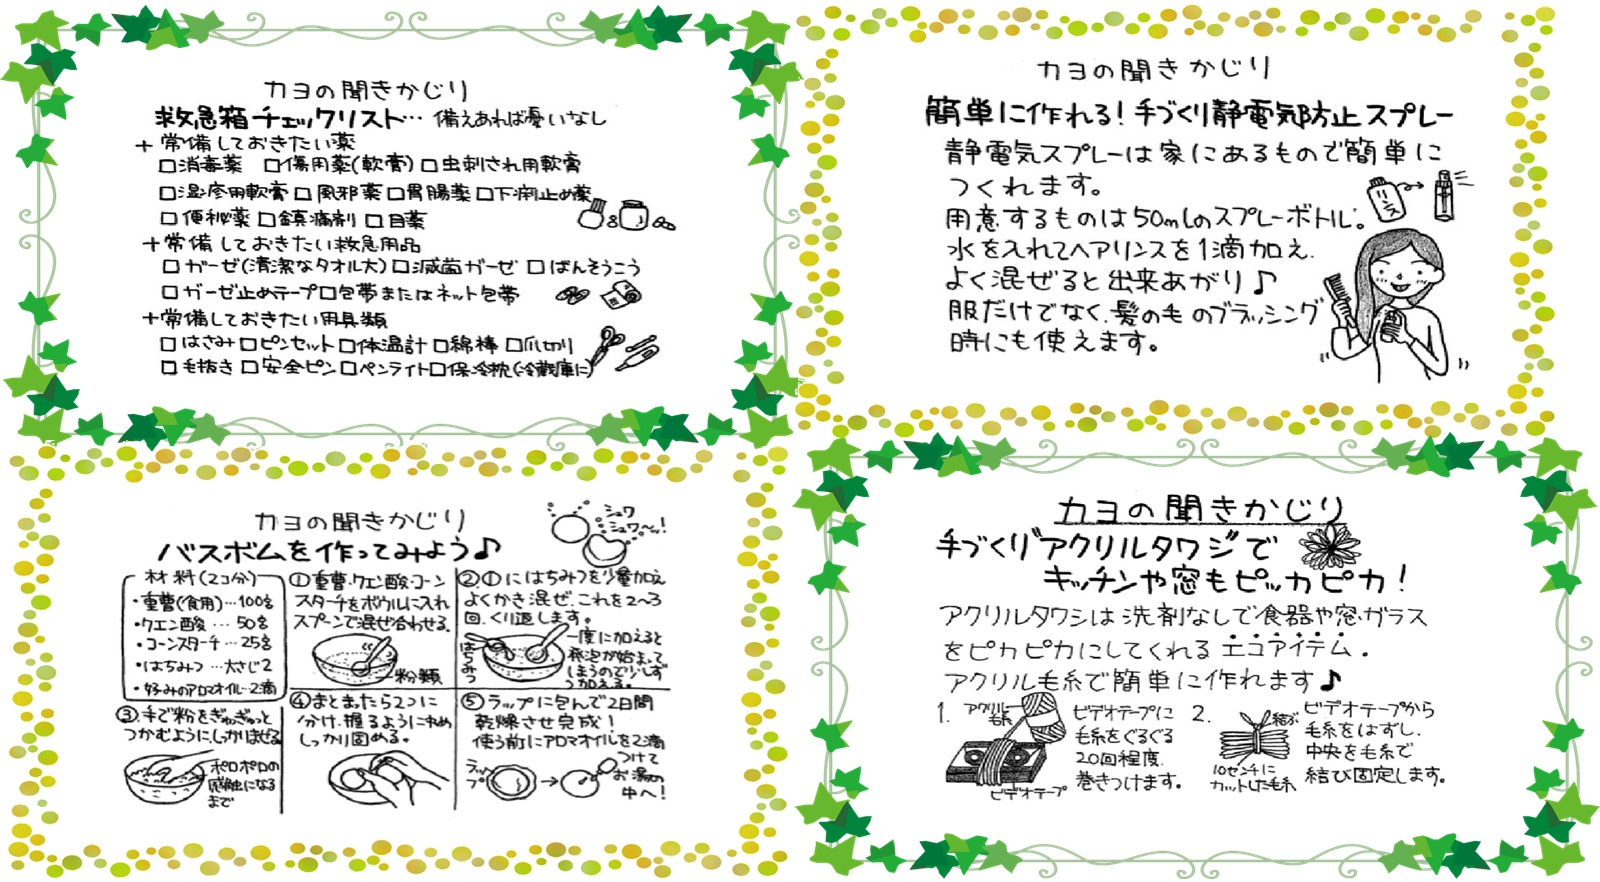 カヨの聞きかじり
救急箱チェックリスト… 備えあれば憂いなし
+常備しておきたい薬
□消毒薬 □傷用薬(軟膏)□虫刺され用軟膏
□湿疹用軟膏□風邪薬□胃腸薬□下痢止め薬
□便秘薬□鎮痛剤□目薬
+常備しておきたい救急用品
□ガーゼ(清潔なタオル大)□滅菌ガーゼ□ばんそうこう
□ガーゼ止めテープ□包帯またはネット包帯
+常備しておきたい用具類
□はさみ□ピンセット□体温計□綿棒□爪切り
□毛抜き□安全ピン□ペンライト□保冷枕(冷蔵庫に)
カヨの聞きかじり
簡単に作れる!手づくり静電気防止スプレー
静電気スプレーは家にあるもので簡単に
つくれます。
用意するものは50mlのスプレーボトル。
水を入れてヘアリンスを1滴加え、
よく混ぜると出来あがり♪
服だけでなく、髪のもののブラッシング
時にも使えます。
リンス
カヨの聞きかじり
バスボムを作ってみよう♪
シュワ
シュワ〜!
材料(2コ分)
・重曹(食用)…100g
・クエン酸…50g
・コーンスターチ…25g
・はちみつ…大さじ2
・好みのアロマオイル…2滴
①重曹、クエン酸、コーン
スターチをボウルに入れ
スプーンで混ぜ合わせる。
粉類
②①にはちみつを少量加え
よくかき混ぜ、これを2〜3
回、くり返します。
はちみつ
一度に加えると
発泡が始まって
しまうので少しずつ加える。
③手で粉をぎゅぎゅっと
つかむようにしっかりまぜる
ポロポロの
感触になる
まで
④まとまったら2つに
分け、握るように丸め
しっかり固める。
⑤ラップに包んで2日間
乾燥させ完成!
使う前にアロマオイルを2滴
つけて
お湯の
中へ!
ラップ
カヨの聞きかじり
手づくりアクリルタワシで
キッチンや窓もピッカピカ!
アクリルタワシは洗剤なしで食器や窓ガラス
をピカピカにしてくれるエコアイテム。
アクリル毛糸で簡単に作れます♪
1.
アクリル
毛糸
ビデオテープに
毛糸をぐるぐる
20回程度、
巻きつけます。
ビデオテープ
2.
結ぶ
10センチに
カットした毛糸
ビデオテープから
毛糸をはずし、
中央を毛糸で
結び固定します。